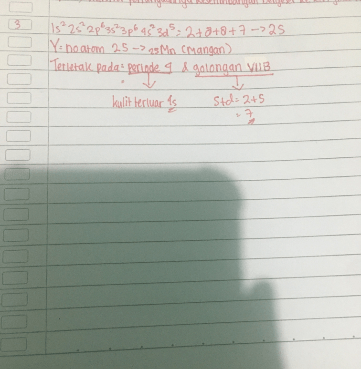 3 1s² 2s² 2p⁶ 3s² 3p⁶ 4s² 3d⁵ = 2+8+8+7 → 25
Y = no atom 25 → ₂₅Mn (Mangan)
Terletak pada = periode 4 & golongan VIIB
kulit terluar 4s
s+d = 2+5
= 7